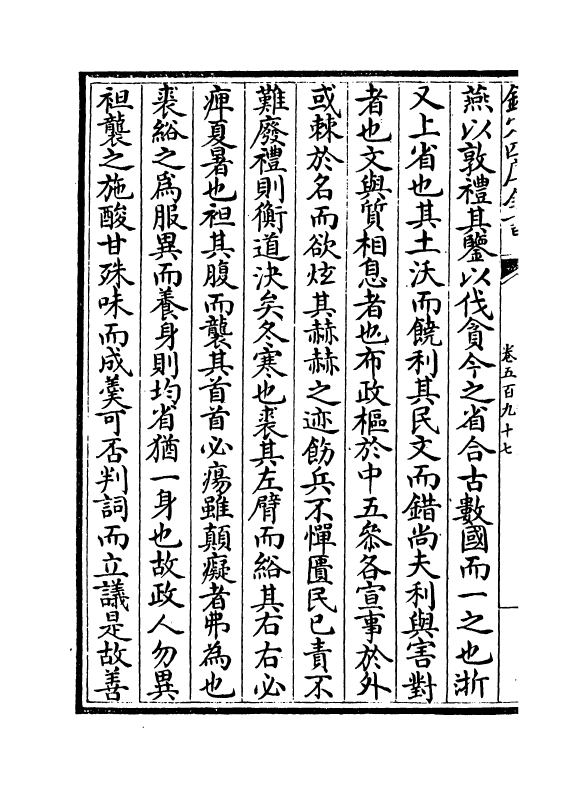 欽定四庫全書
卷五百九十七
燕以敦禮其鑒以伐貪今之省合古數國而一之也浙
又上省也其土沃而饒利其民文而錯尚夫利與害對
者也文與質相息者也布政樞於中五叅各宣事於外
或棘於名而欲炫其赫赫之迹飭兵不憚匱民已責不
難廢禮則衡道決矣冬寒也裘其左臂而綌其右右必
痺夏暑也袒其腹而襲其首首必瘍雖顛癡者弗為也
裘綌之爲服異而養身則均省猶一身也故政人勿異
袒襲之施酸甘殊味而成羮可否判詞而立議是故善